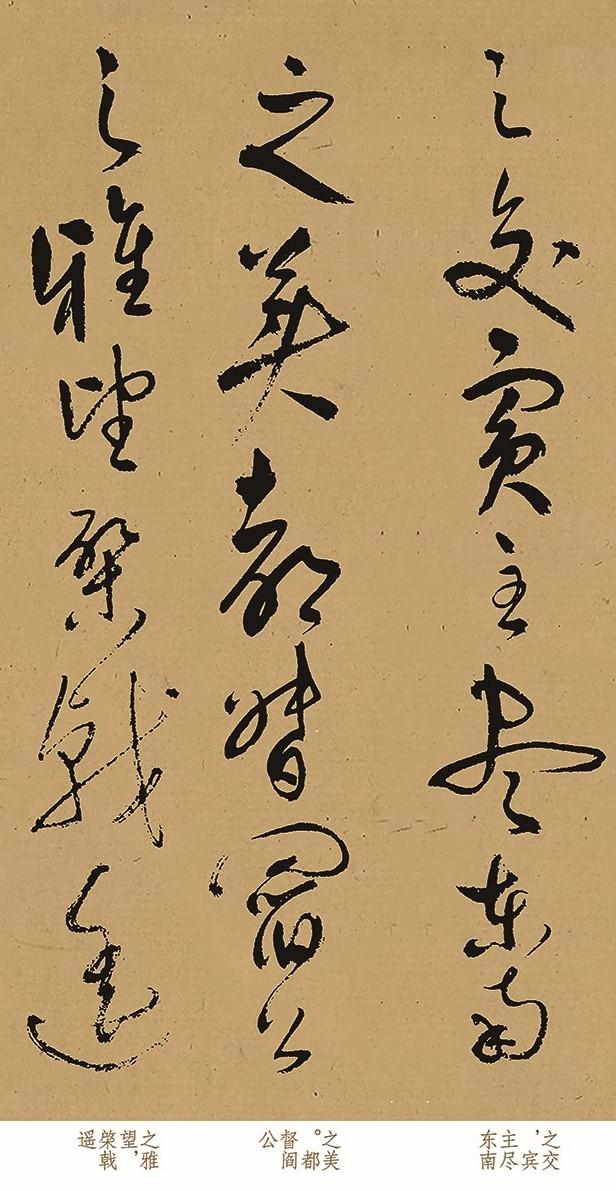 之交賓主尽东南
之美都督閻公
之雅望棨戟遥
之交，宾主尽东南
之美。都督阎公
之雅望，棨戟遥